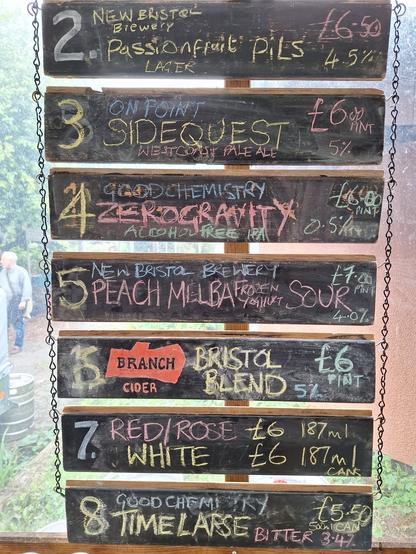 2. NEW BRISTOL £6.50
Brewery
Passionfruit PiLS 4.5%
LAGER
3 ON POINT £6.00
SIDEQUEST PINT
WESTCOAST PALE ALE 5%
4 GOODCHEMISTRY £6.00
ZEROGRAVITY PINT
ALCOHOL FREE IPA 0.5%
5 NEW BRISTOL BREWERY £7.00
PEACH MELBA FROZEN YOGHURT SOUR PINT
4.0%
6 BRANCH BRISTOL £6
CIDER BLEND 5% PINT
7. RED/ROSE £6 187ml
WHITE £6 187ml
CANS
8 GOODCHEMISTRY £5.50
TIMELAPSE BITTER 3.4%